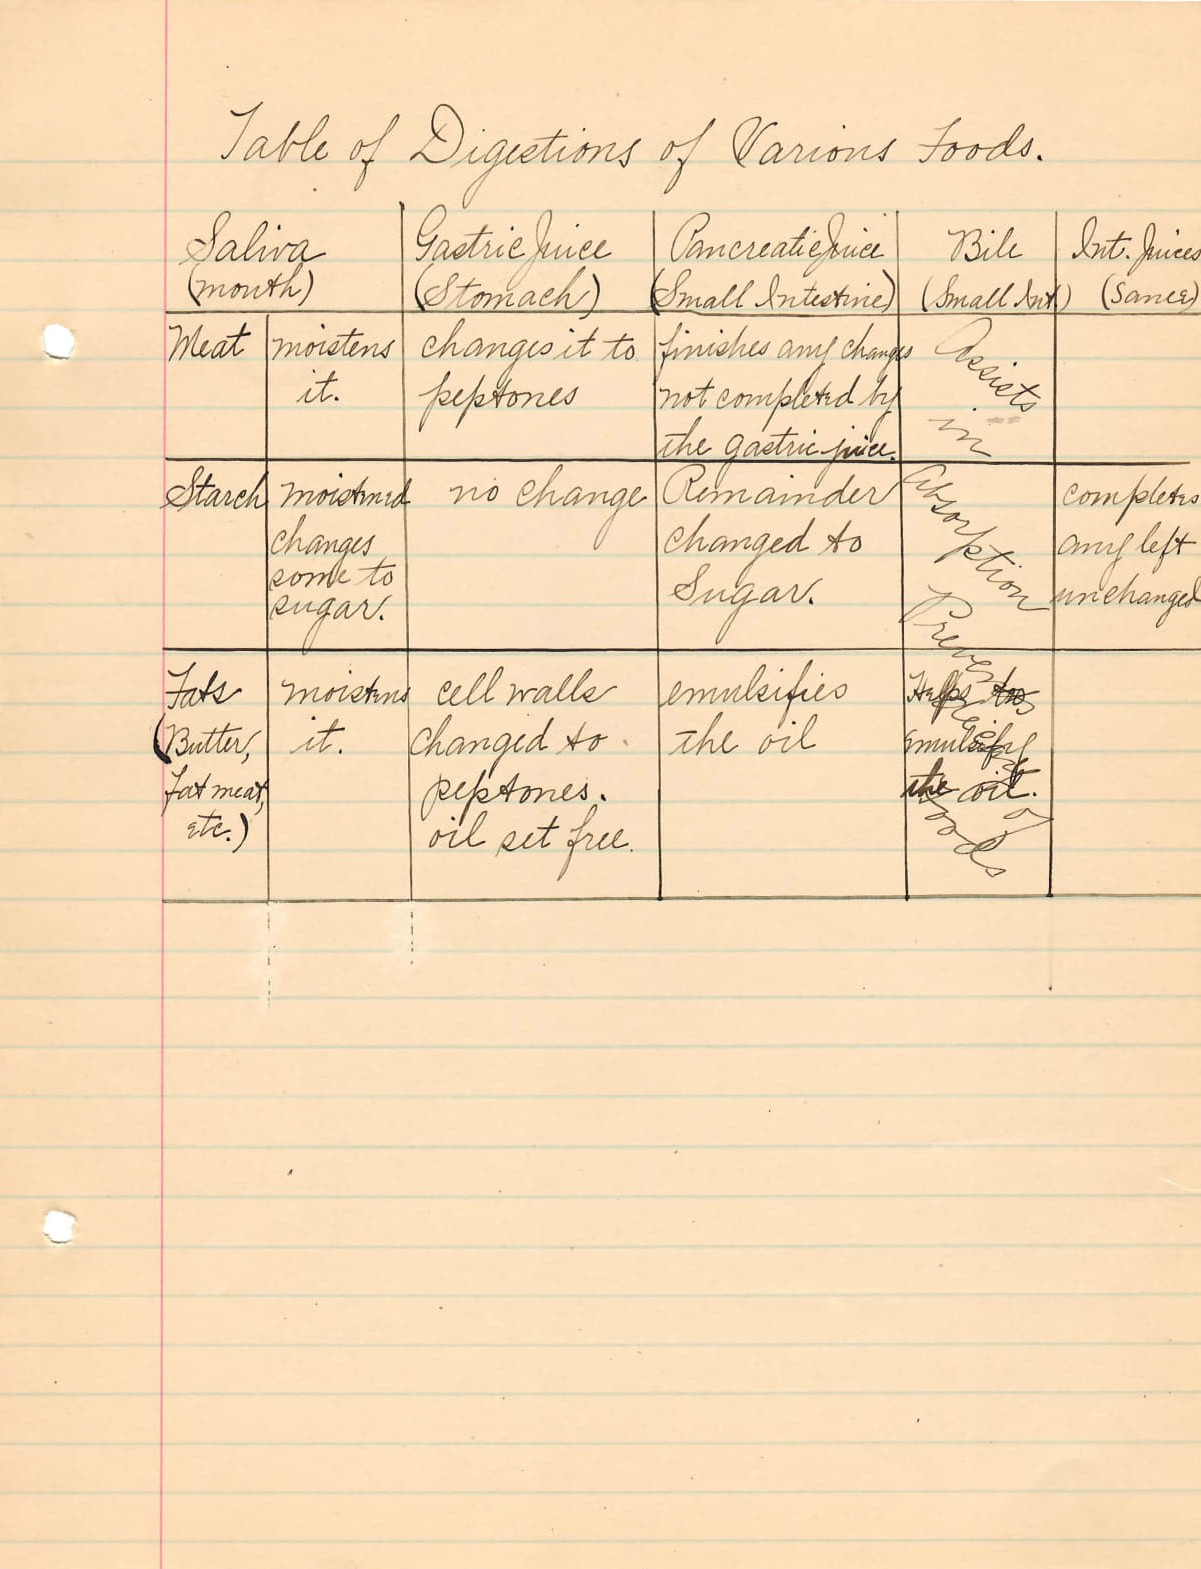 Table of Digestions of Various Foods.
Saliva
(mouth)
Gastric Juice
(Stomach)
Pancreatic Juice
(Small Intestine)
Bile
(Small Int.)
Int. Juices
(Same)
Meat
moistens
it.
changes it to
peptones
finishes any changes
not completed by
the gastric juice.
Assists
in
Absorption
Starch
moistened
changes
some to
sugar.
no change
Remainder
changed to
Sugar.
completes
any left
unchanged
Fats
(Butter,
fat meat,
etc.)
moistens
it.
cell walls
changed to
peptones.
oil set free.
emulsifies
the oil
Helps to
emulsify
the oil.
of
foods